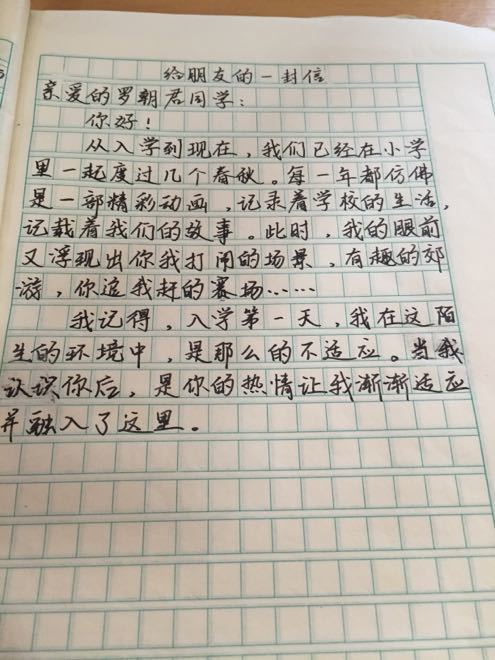 给朋友的一封信
亲爱的罗朝君同学：
你好！
从入学到现在，我们已经在小学
里一起度过几个春秋。每一年都仿佛
是一部精彩动画，记录着学校的生活，
记载着我们的故事。此时，我的眼前
又浮现出你我打闹的场景，有趣的郊
游，你追我赶的赛场……
我记得，入学第一天，我在这陌
生的环境中，是那么的不适应。当我
认识你后，是你的热情让我渐渐适应
并融入了这里。